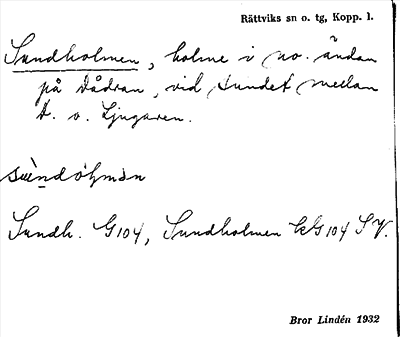 Rättviks sn o. tg, Kopp. l.
Sundholmen, holme i no. ändan
på Dådran, vid sundet mellan
D. o. Ljugaren.
Sundh. G104, Sundholmen EkG104 SV.
Bror Lindén 1932